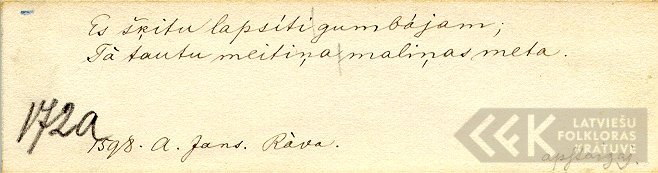 Es šķitu lapsīti gumbājam;
Tā tautu meitiņa maliņas meta.
172a
1598. A. Jans. Rāva.
LATVIEŠU
FOLKLORAS
KRĀTUVE